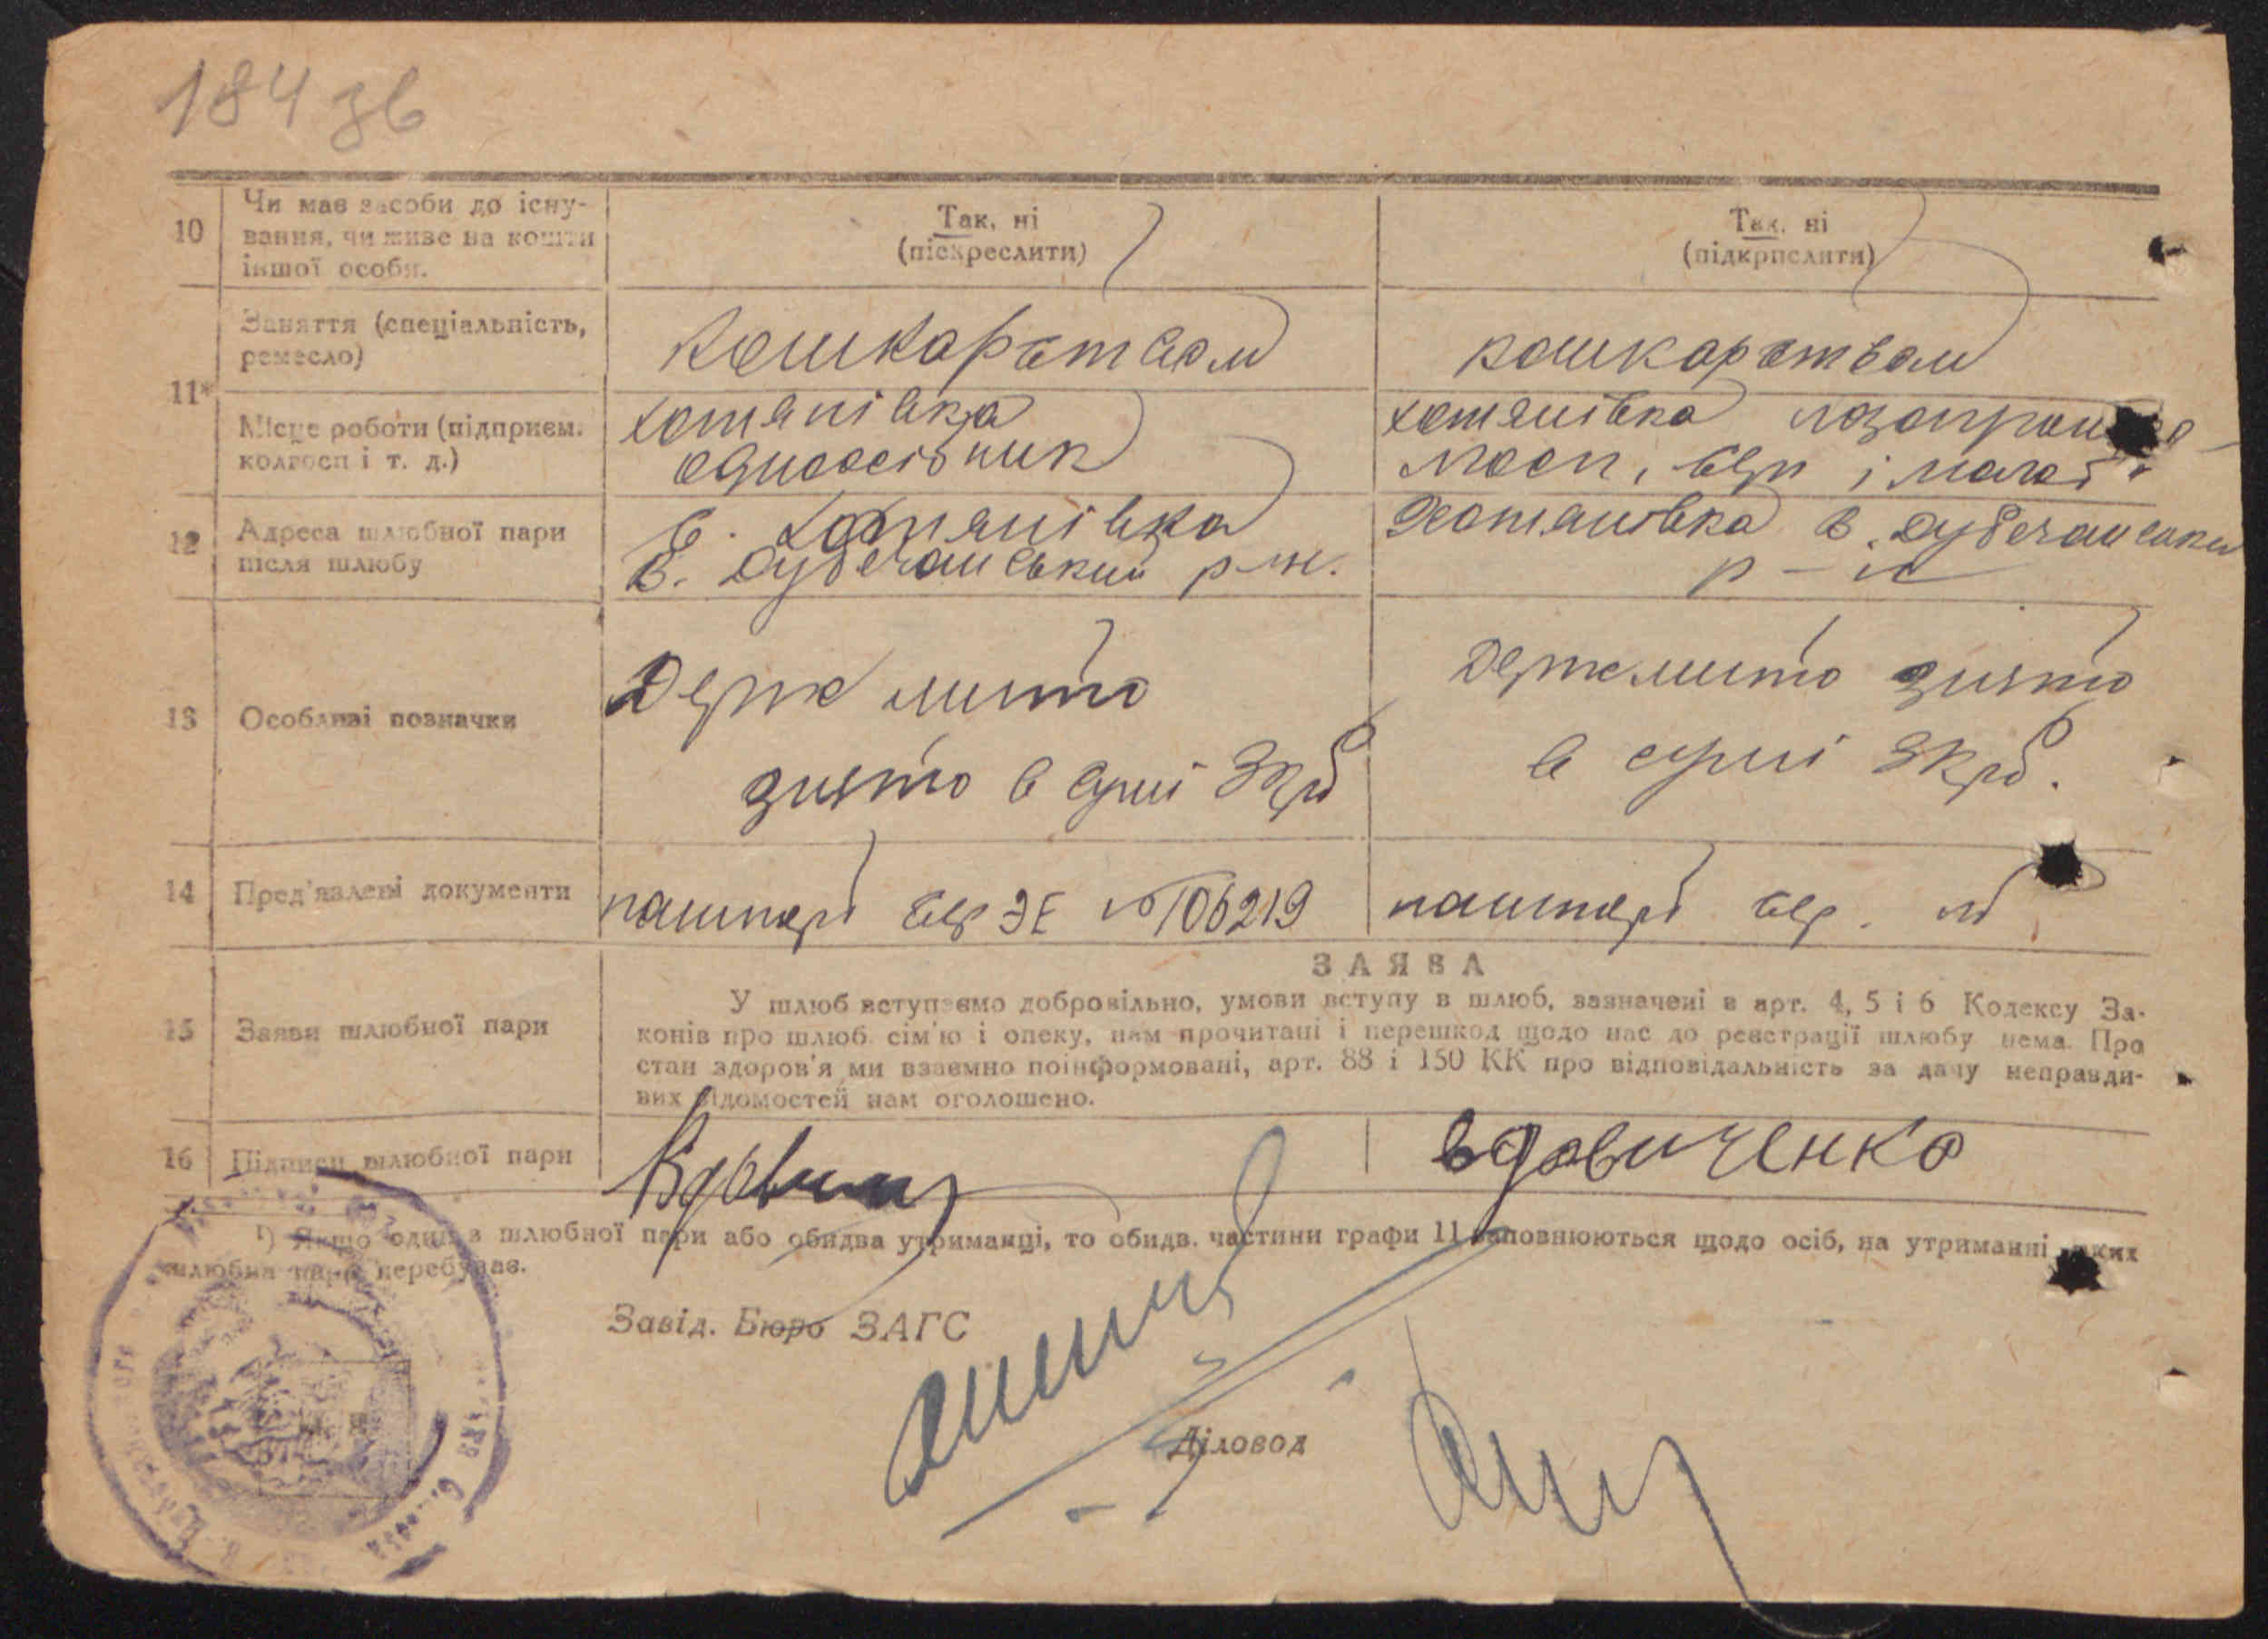 184 зв
10
Чи має засоби до існу-
вання, чи живе на кошти
іншої особи.
Так, ні
(піскреслити)
Так, ні
(підкрпслити)
11*
Заняття (спеціальність,
ремесло)
кошкарством
кошкарством
Місце роботи (підприєм.
колгосп і т. д.)
хотянівка
одноосібник
хотянівка
12
Адреса шлюбної пари
після шлюбу
с. Хотянівка
В. Дубечанський р-н.
Хотянівка В. Дубечански
р-н
13
Особливі позначки
Держ мито
знято в сумі 3крб
Держмито знято
в сумі 3крб.
14
Пред'явлені документи
пашпорт сер ЭЕ № 106219
пашпорт сер. №
15
Заяви шлюбної пари
ЗАЯВА
У шлюб вступаємо добровільно, умови вступу в шлюб, зазначені в арт. 4, 5 і 6 Кодексу За-
конів про шлюб. сім'ю і опеку, нам прочитані і перешкод щодо нас до реєстрації шлюбу нема. Про
стан здоров'я ми взаємно поінформовані, арт. 88 і 150 КК про відповідальність за дачу неправди-
вих відомостей нам оголошено.
16
Підписи шлюбної пари
вдовиченко
¹) Якщо один з шлюбної пари або обидва утриманці, то обидв. частини графи 11 заповнюються щодо осіб, на утриманні яких
шлюбна пара перебуває.
Завід. Бюро ЗАГС
Діловод